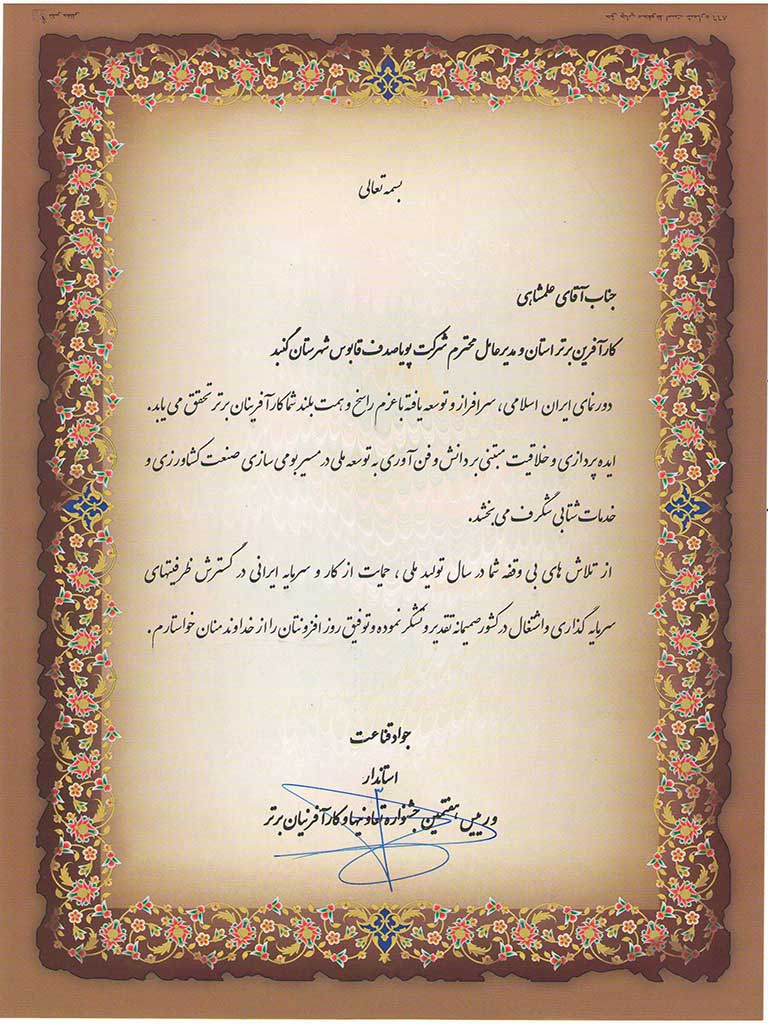 بسمه تعالی
جناب آقای علمشاهی
کارآفرین برتر استان و مدیرعامل محترم شرکت پویا صدف قابوس شهرستان گنبد
دورنمای ایران اسلامی، سرافراز و توسعه یافته با عزم راسخ و همت بلند شما کارآفرینان برتر تحقق می یابد.
ایده پردازی و خلاقیت مبتنی بر دانش و فن آوری به توسعه ملی در مسیر بومی سازی صنعت کشاورزی و
خدمات شتابی شگرف می بخشد.
از تلاش های بی وقفه شما در سال تولید ملی ، حمایت از کار و سرمایه ایرانی در گسترش ظرفیتهای
سرمایه گذاری و اشتغال در کشور صمیمانه تقدیر و تشکر نموده و توفیق روز افزونتان را از خداوند منان خواستارم.
جواد قناعت
استاندار
و رییس هفتمین جشنواره تعاونیها و کارآفرنیان برتر